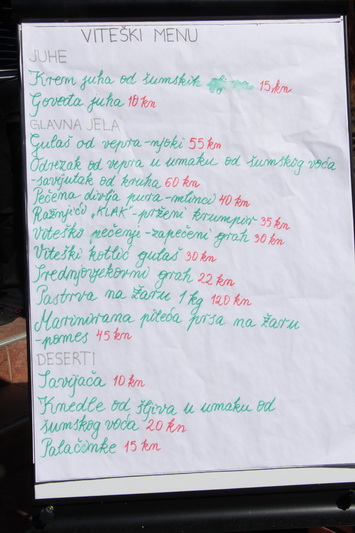 VITEŠKI MENU
JUHE
Krem juha od šumskih 15,kn
Goveđa juha 10 kn
GLAVNA JELA
Gulaš od vepra-njoki 55 kn
Odrezak od vepra u umaku od šumskog voća
-savijutak od kruha 60 kn
Pečena divlja pura-mlinci 40 kn
Ražnjići „KLAK"-prženi krumpir 35 kn
Viteško pečenje-zapečeni grah 30 kn
Viteški kotlić gulaš 30 kn
Srednjovjekovni grah 22 kn
Pastrva na žaru 1 kg 120 kn
Marinirana pileća prsa na žaru
-pomes 45 kn
DESERTI
Savijača 10 kn
Knedle od šljiva u umaku od
šumskog voća 20 kn
Palačinke 15 kn